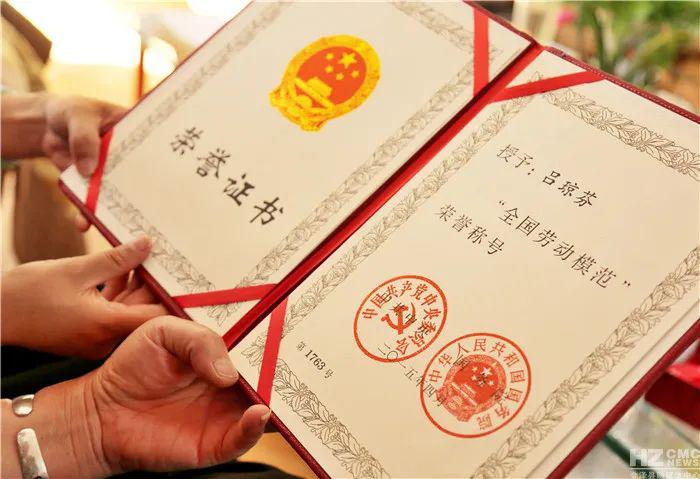 荣誉证书
授予：吕琼芬
“全国劳动模范”
荣誉称号
中国共产党中央委员会
中华人民共和国国务院
二〇一五年四月
第1763号
HZ CMC
NEWS